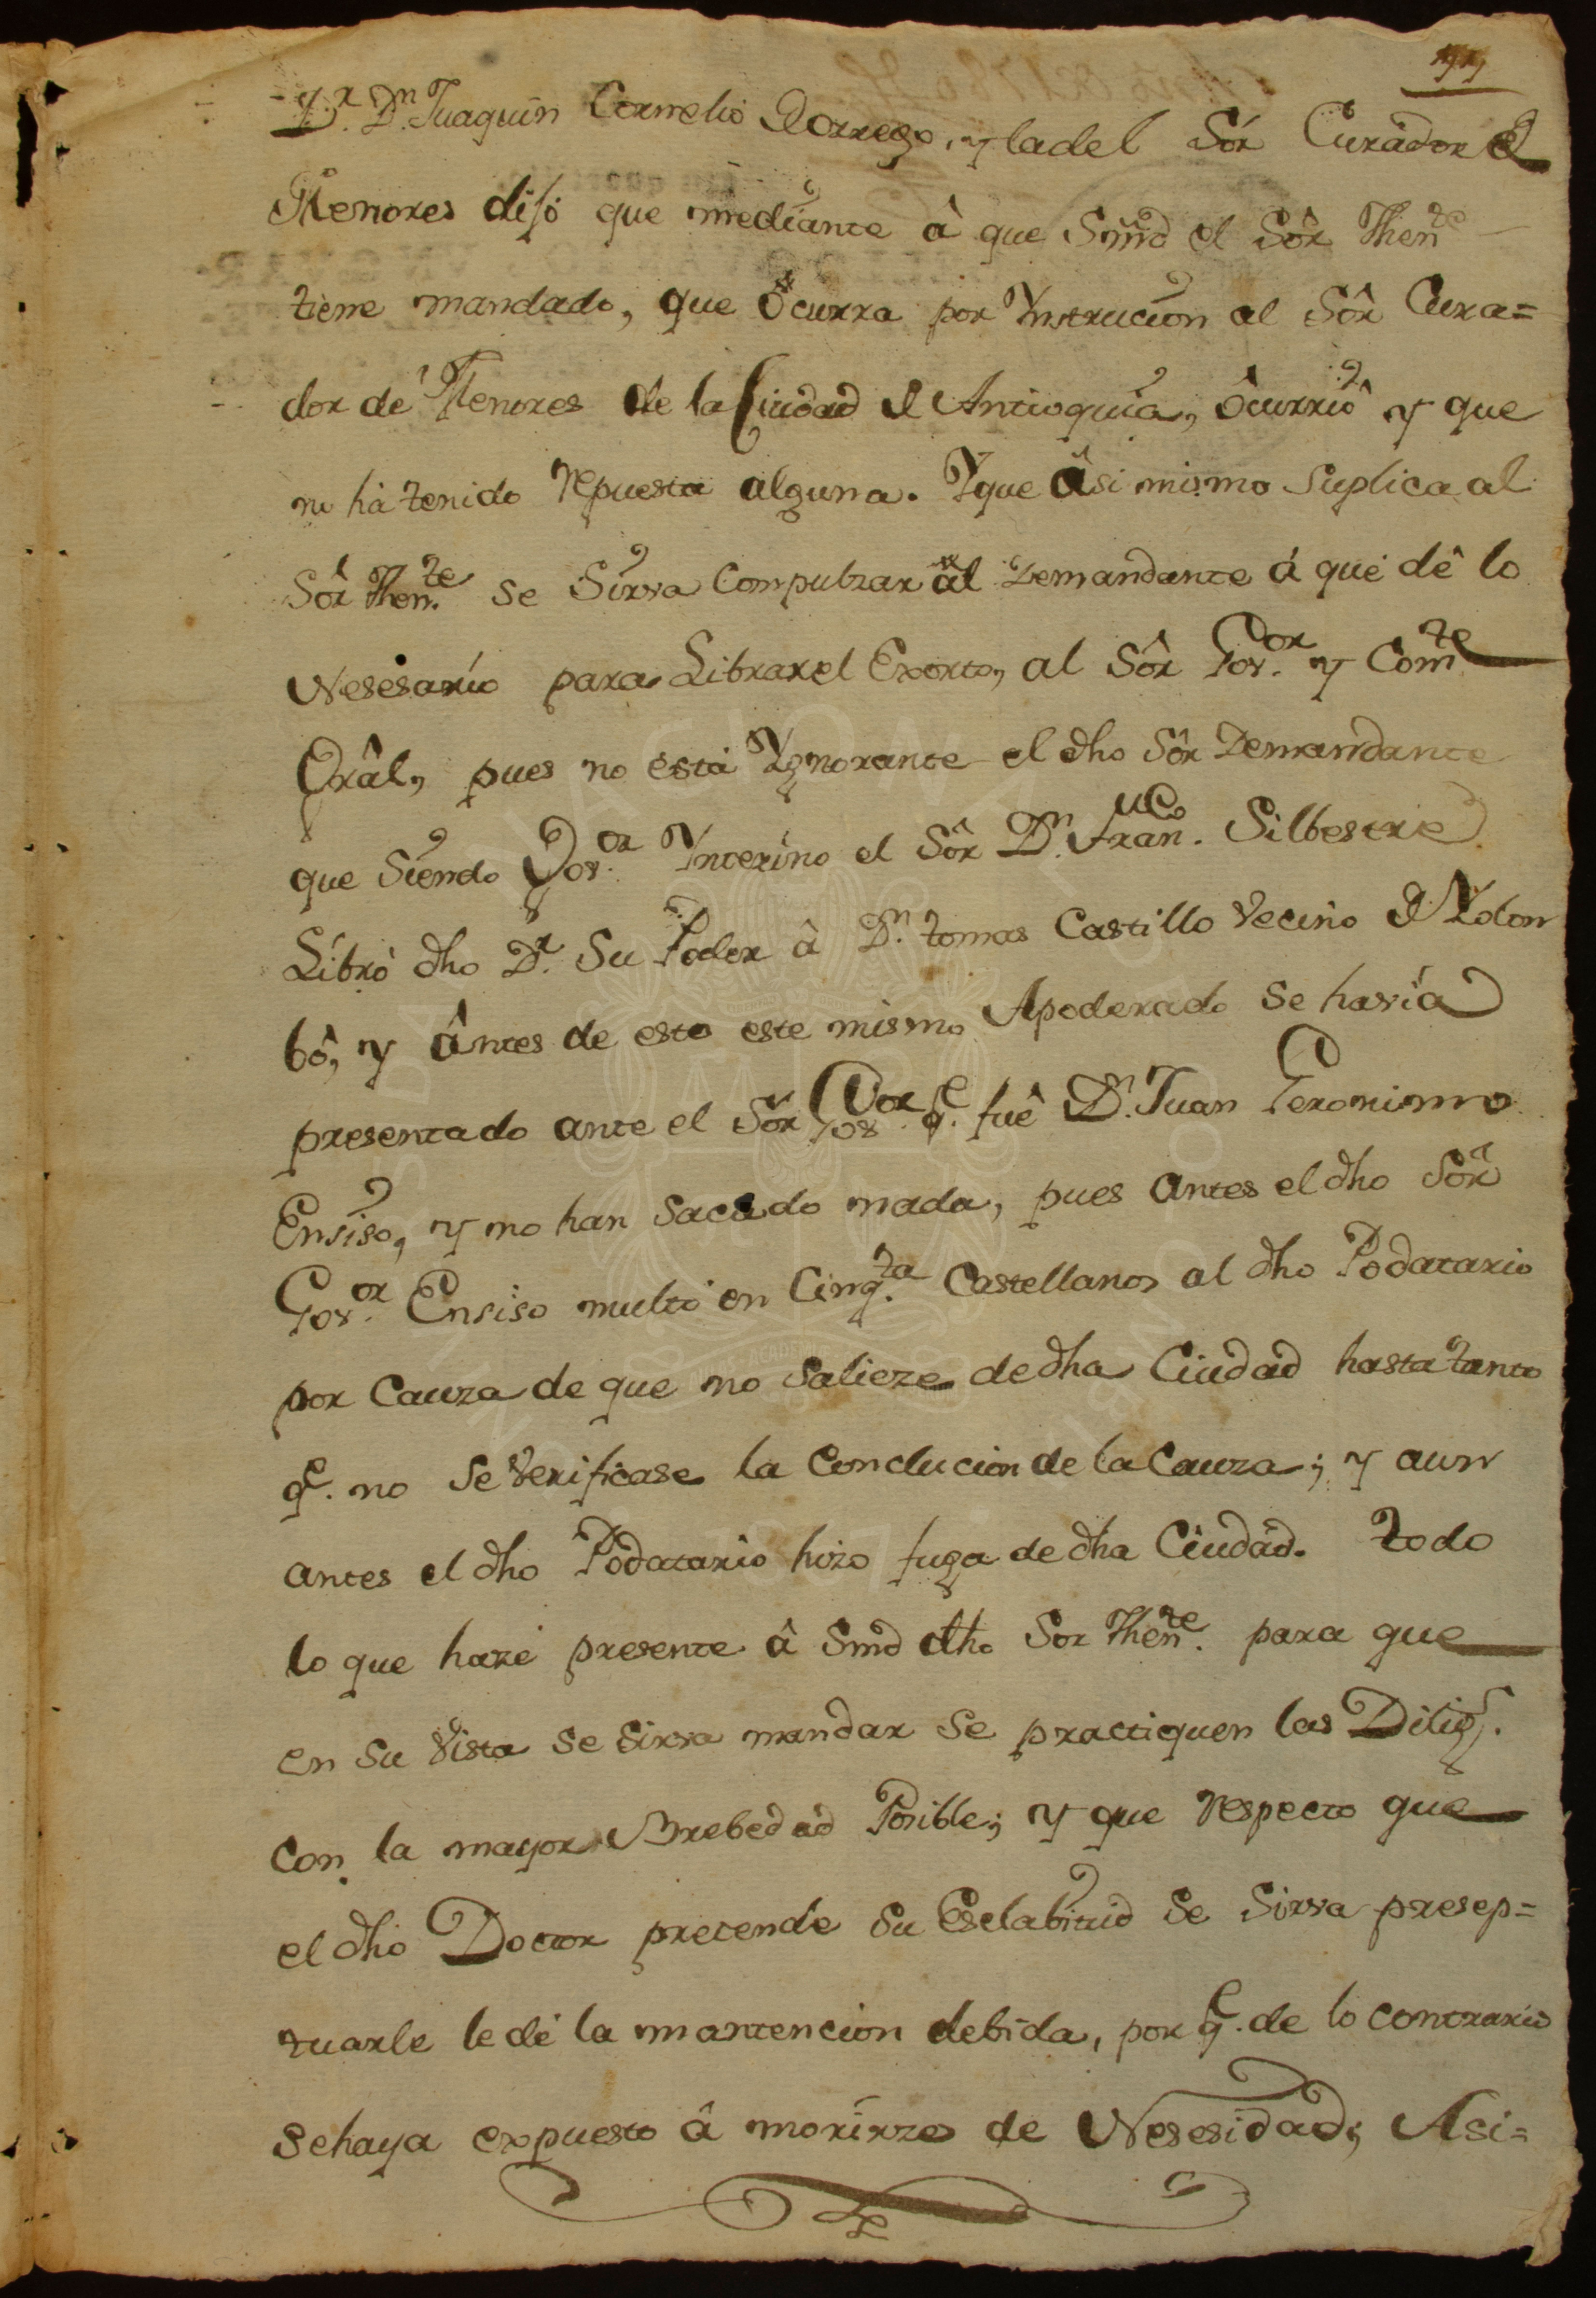 Dr. Dn. Juaquin Cornelio Dorrego, y ladel Sór Curador de
Menores dijo que mediante â que Smrd el Sôr Thente
tiene mandado, que Ocurra por Ynstrucion al Sôr Cura=
dor de Menores de la Ciudad de Antioquia, ôcurriô y que
no há tenido repuesta alguna. Y que âsi mismo Suplica al
Sôr Thente. se Sirva Compulzar âl Demandante â que dê lo
Nesesario para Librarel Exorto, al Sôr Govor. y Comte
Grâl, pues no está Ygnorante el dho Sôr Demandante
que Siendo Govor. Ynterino el Sôr Dn. Franco. Silbestre
Libró dho Dr. Su Poder â Dn. tomas Castillo Vecino de Yolom
bô, y ântes de esto este mismo Apoderado se havía
presentado ante el Sôr Govor. qe. fuê Dn. Juan Geronimo
Ensiso, y no han Sacado nada, pues antes el dho Sôr
Govor. Ensiso multó en Cinqta. Castellanos al dho Podatario
por Cauza de que no Salieze de dha Ciudad hasta tanto
qe. no Se Verificase la Conclucion de la Cauza; y aun
antes el dho Podatario hizo fuga de dha Ciudad. todo
lo que hazé presente â Smd dho Sor Thente. para que
en Su Vista Se Sirva mandar Se practiquen las Diligs.
Con la mayor Brebedad Posible; y que respecto que
el dho Doctor pretende Su Esclabitud Se Sirva presep=
tuarle le dé la mantencion debida, por qe. de lo contrario
Sehaya expuesto â morirze de Nesesidad; Asi=